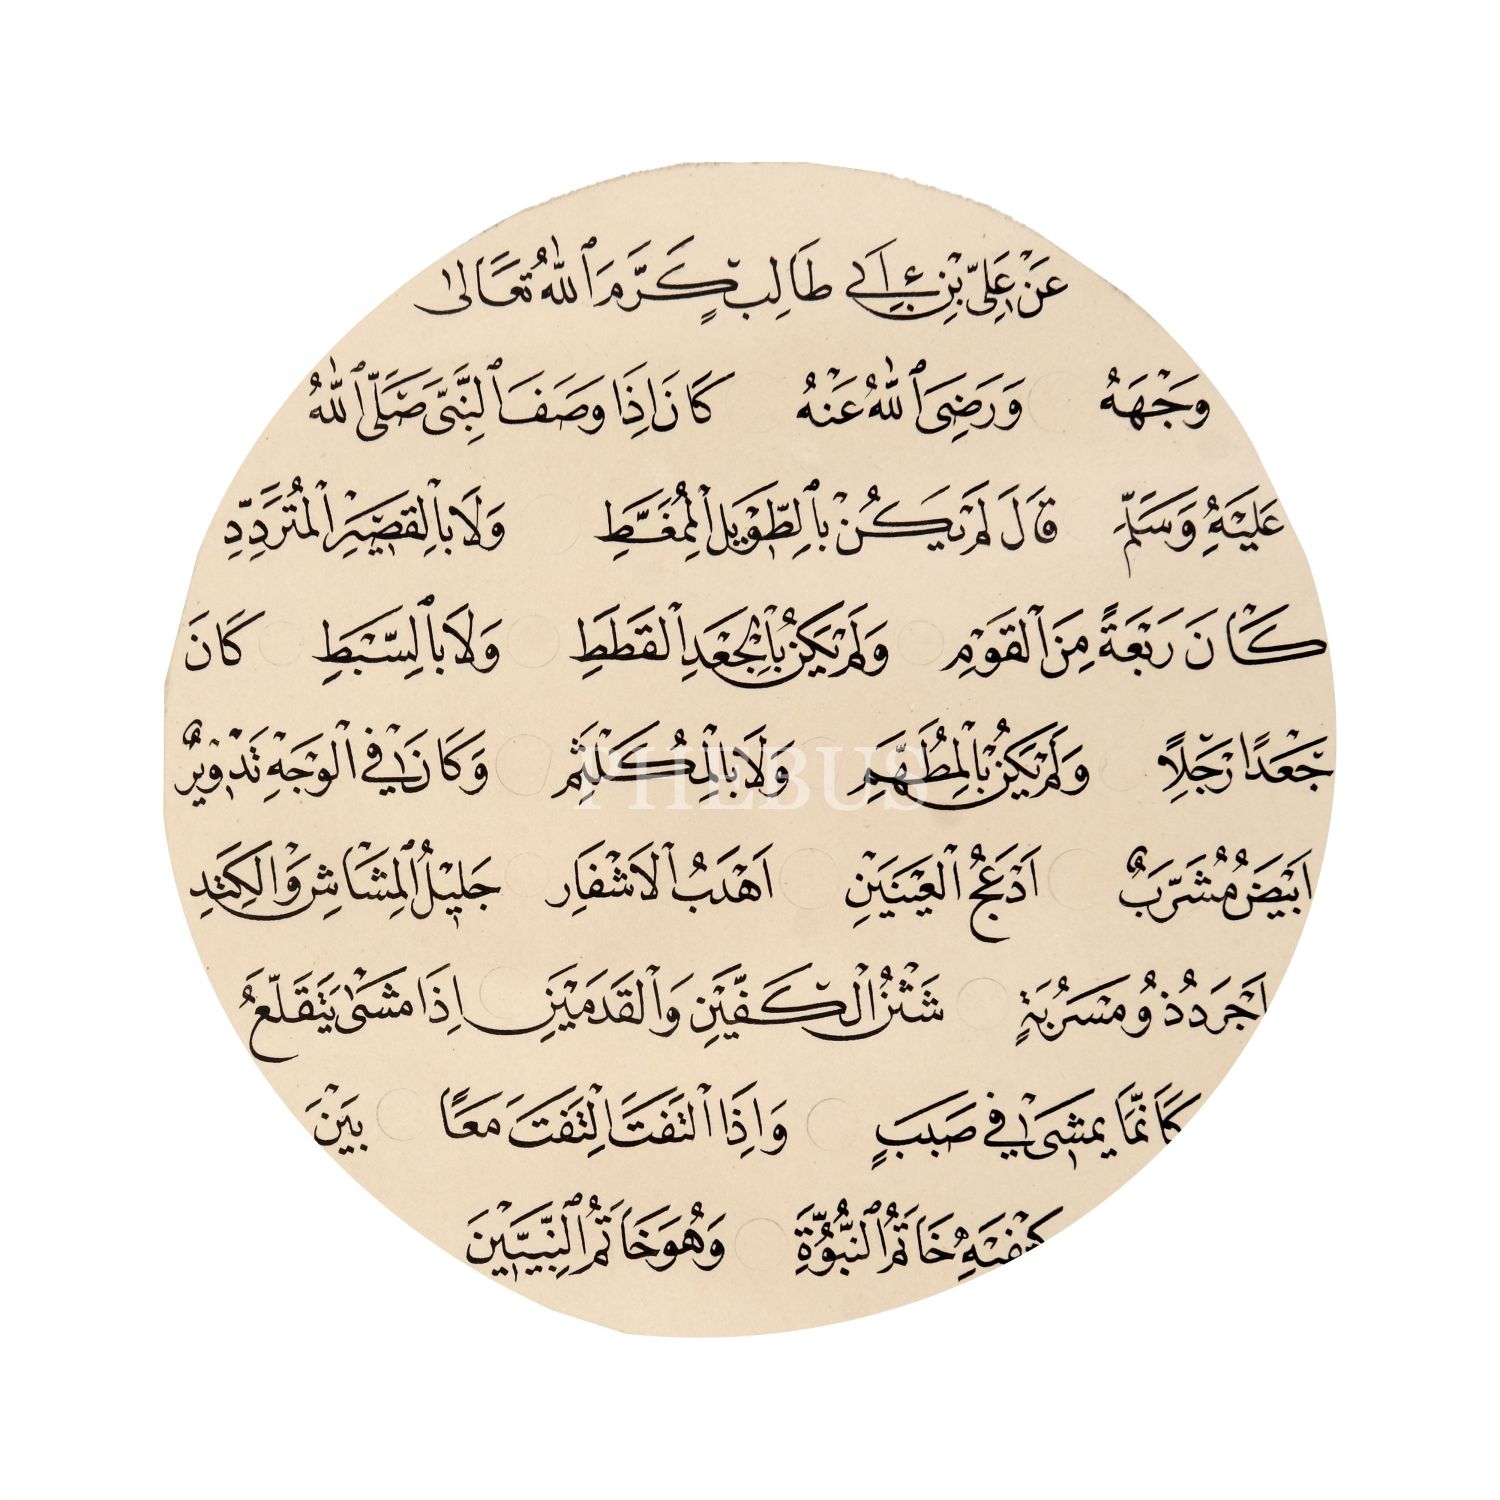 عَنْ عَلِيِّ بْنِ اَبِي طَالِبٍ كَرَّمَ اللهُ تَعَالٰى
وَجْهَهُ وَرَضِيَ اللهُ عَنْهُ كَانَ اِذَا وَصَفَ النَّبِيَّ صَلَّى اللهُ
عَلَيْهِ وَسَلَّمَ قَالَ لَمْ يَكُنْ بِالطَّوِيلِ الْمُمَغَّطِ وَلَا بِالْقَصِيرِ الْمُتَرَدِّدِ
كَانَ رَبْعَةً مِنَ الْقَوْمِ وَلَمْ يَكُنْ بِالْجَعْدِ الْقَطَطِ وَلَا بِالسَّبْطِ كَانَ
جَعْدًا رَجِلًا وَلَمْ يَكُنْ بِالْمُطَهَّمِ وَلَا بِالْمُكَلْثَمِ وَكَانَ فِي الْوَجْهِ تَدْوِيرٌ
اَبْيَضُ مُشَرَّبٌ اَدْعَجُ الْعَيْنَيْنِ اَهْدَبُ الْاَشْفَارِ جَلِيلُ الْمُشَاشِ وَالْكَتَدِ
اَجْرَدُ ذُو مَسْرُبَةٍ شَثْنُ الْكَفَّيْنِ وَالْقَدَمَيْنِ اِذَا مَشٰى يَتَقَلَّعُ
كَاَنَّمَا يَمْشِي فِي صَبَبٍ وَاِذَا الْتَفَتَ الْتَفَتَ مَعًا بَيْنَ
كَتِفَيْهِ خَاتَمُ النُّبُوَّةِ وَهُوَ خَاتَمُ النَّبِيِّينَ
PHEBUS